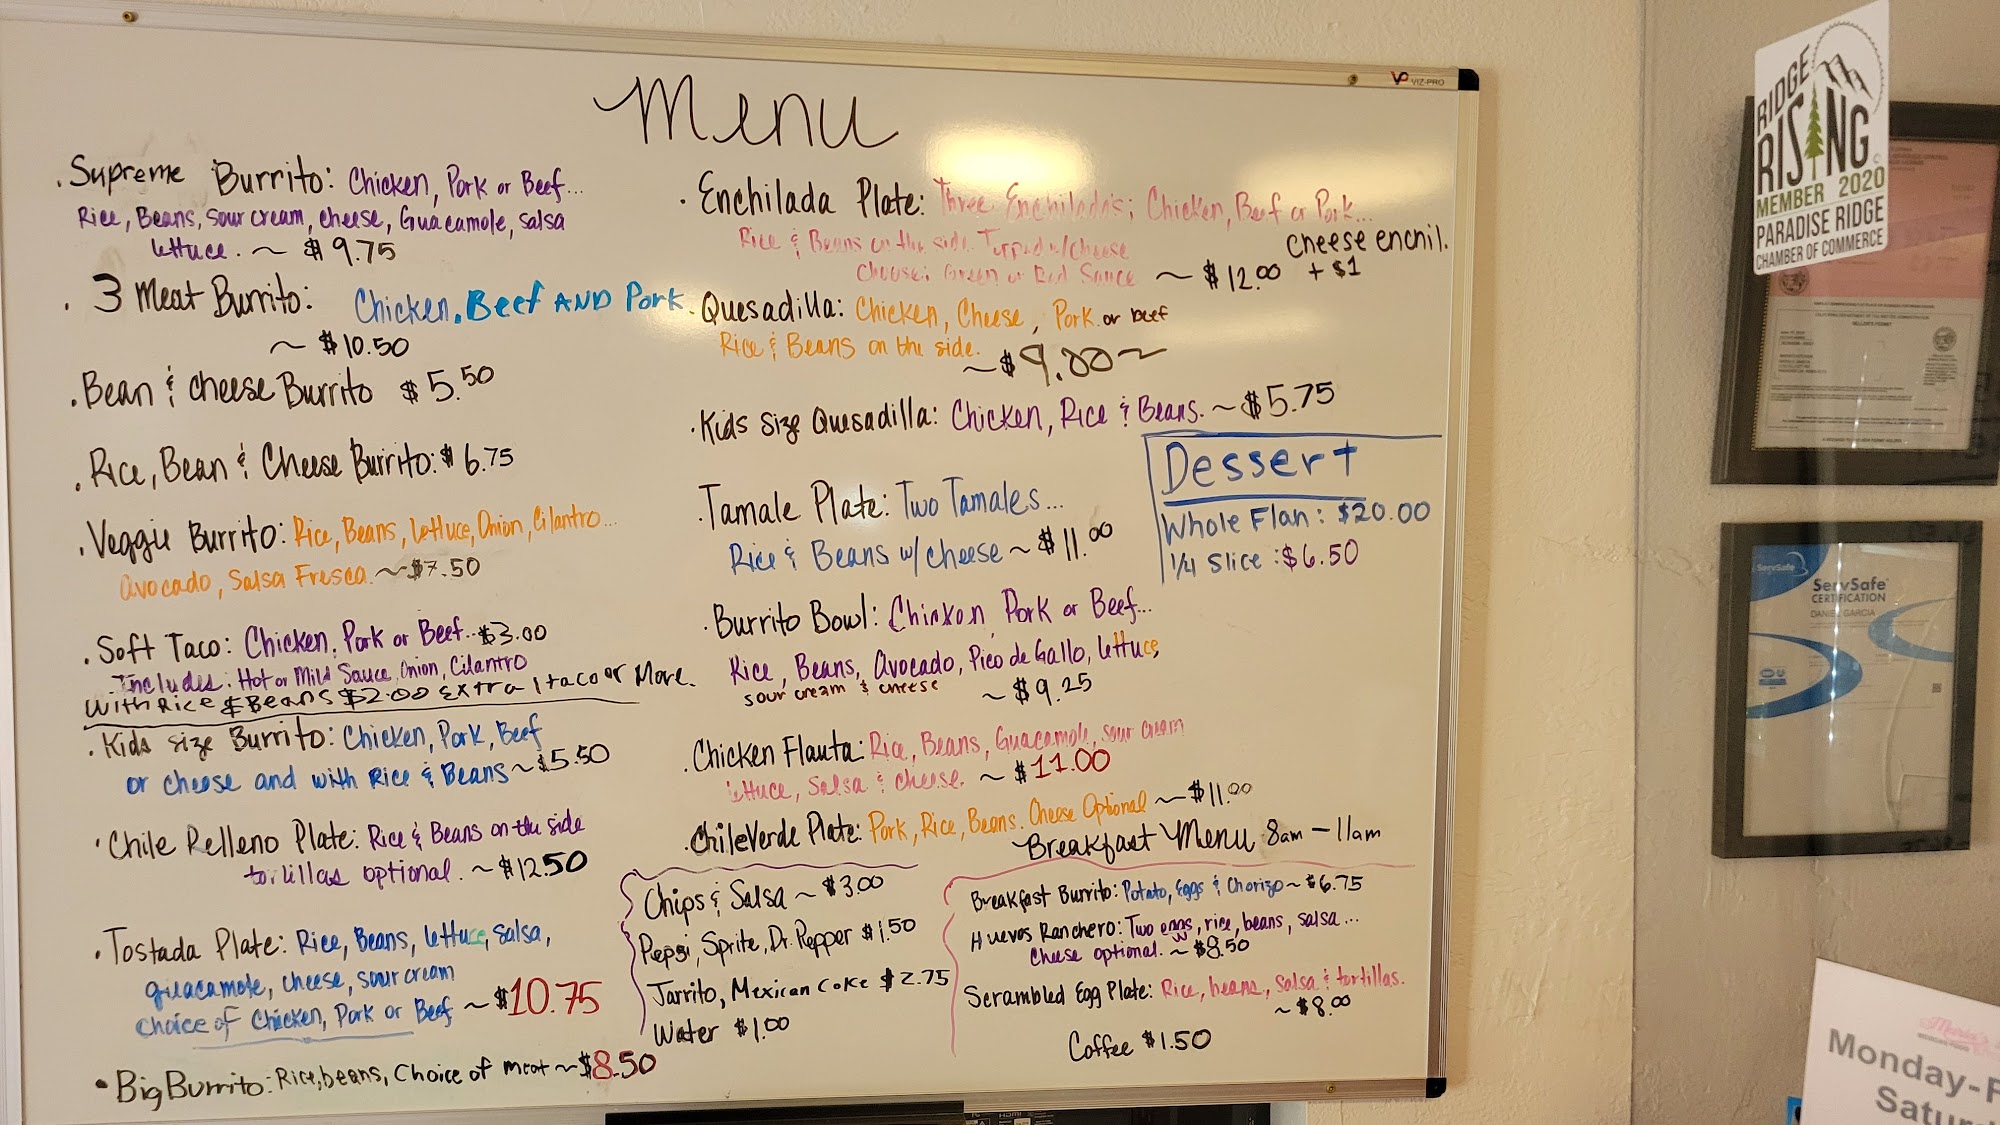 Menu
. Supreme Burrito: Chicken, Pork or Beef...
Rice, Beans, sour cream, cheese, Guacamole, salsa
lettuce. ~ $9.75
. 3 Meat Burrito: Chicken, Beef AND Pork
~ $10.50
. Bean & cheese Burrito $5.50
. Rice, Bean & Cheese Burrito: $6.75
. Veggie Burrito: Rice, Beans, lettuce, Onion, Cilantro...
Avocado, Salsa Fresca. ~ $7.50
. Soft Taco: Chicken, Pork or Beef.. $3.00
Includes: Hot or Mild Sauce, Onion, Cilantro
With Rice & Beans $2.00 extra 1 taco or More.
. Kids size Burrito: Chicken, Pork, Beef
or cheese and with Rice & Beans ~ $5.50
. Chile Relleno Plate: Rice & Beans on the side
tortillas optional. ~ $12.50
. Tostada Plate: Rice, Beans, lettuce, salsa,
guacamole, cheese, sour cream
choice of Chicken, Pork or Beef ~ $10.75
• Big Burrito: Rice, beans, Choice of meat ~ $8.50
. Enchilada Plate: Three Enchilada's; Chicken, Beef or Pork...
Rice & Beans on the side. Topped w/cheese
Choose: Green or Red Sauce ~ $12.00
cheese enchil.
+ $1
. Quesadilla: Chicken, Cheese, Pork or beef
Rice & Beans on the side.
~ $9.00 ~
. Kids Size Quesadilla: Chicken, Rice & Beans. ~ $5.75
. Tamale Plate: Two Tamales...
Rice & Beans w/cheese ~ $11.00
Dessert
Whole Flan: $20.00
1/4 Slice: $6.50
. Burrito Bowl: Chicken Pork or Beef...
Rice, Beans, Avocado, Pico de Gallo, lettuce,
sour cream & cheese ~ $9.25
. Chicken Flauta: Rice, Beans, Guacamole, sour cream
lettuce, Salsa & cheese. ~ $11.00
. Chile Verde Plate: Pork, Rice, Beans. Cheese Optional ~ $11.00
Chips & Salsa ~ $3.00
Pepsi, Sprite, Dr. Pepper $1.50
Jarrito, Mexican coke $2.75
Water $1.00
Breakfast Menu 8am - 11am
Breakfast Burrito: Potato, Eggs & Chorizo ~ $6.75
Huevos Ranchero: Two eggs, rice, beans, salsa...
Cheese optional. ~ $8.50
Scrambled Egg Plate: Rice, beans, Salsa & tortillas.
~ $8.00
Coffee $1.50
VIZ-PRO
RIDGE
RISING
MEMBER 2020
PARADISE RIDGE
CHAMBER OF COMMERCE
ServSafe
ServSafe
CERTIFICATION
HDMI
Monday-F
Satur